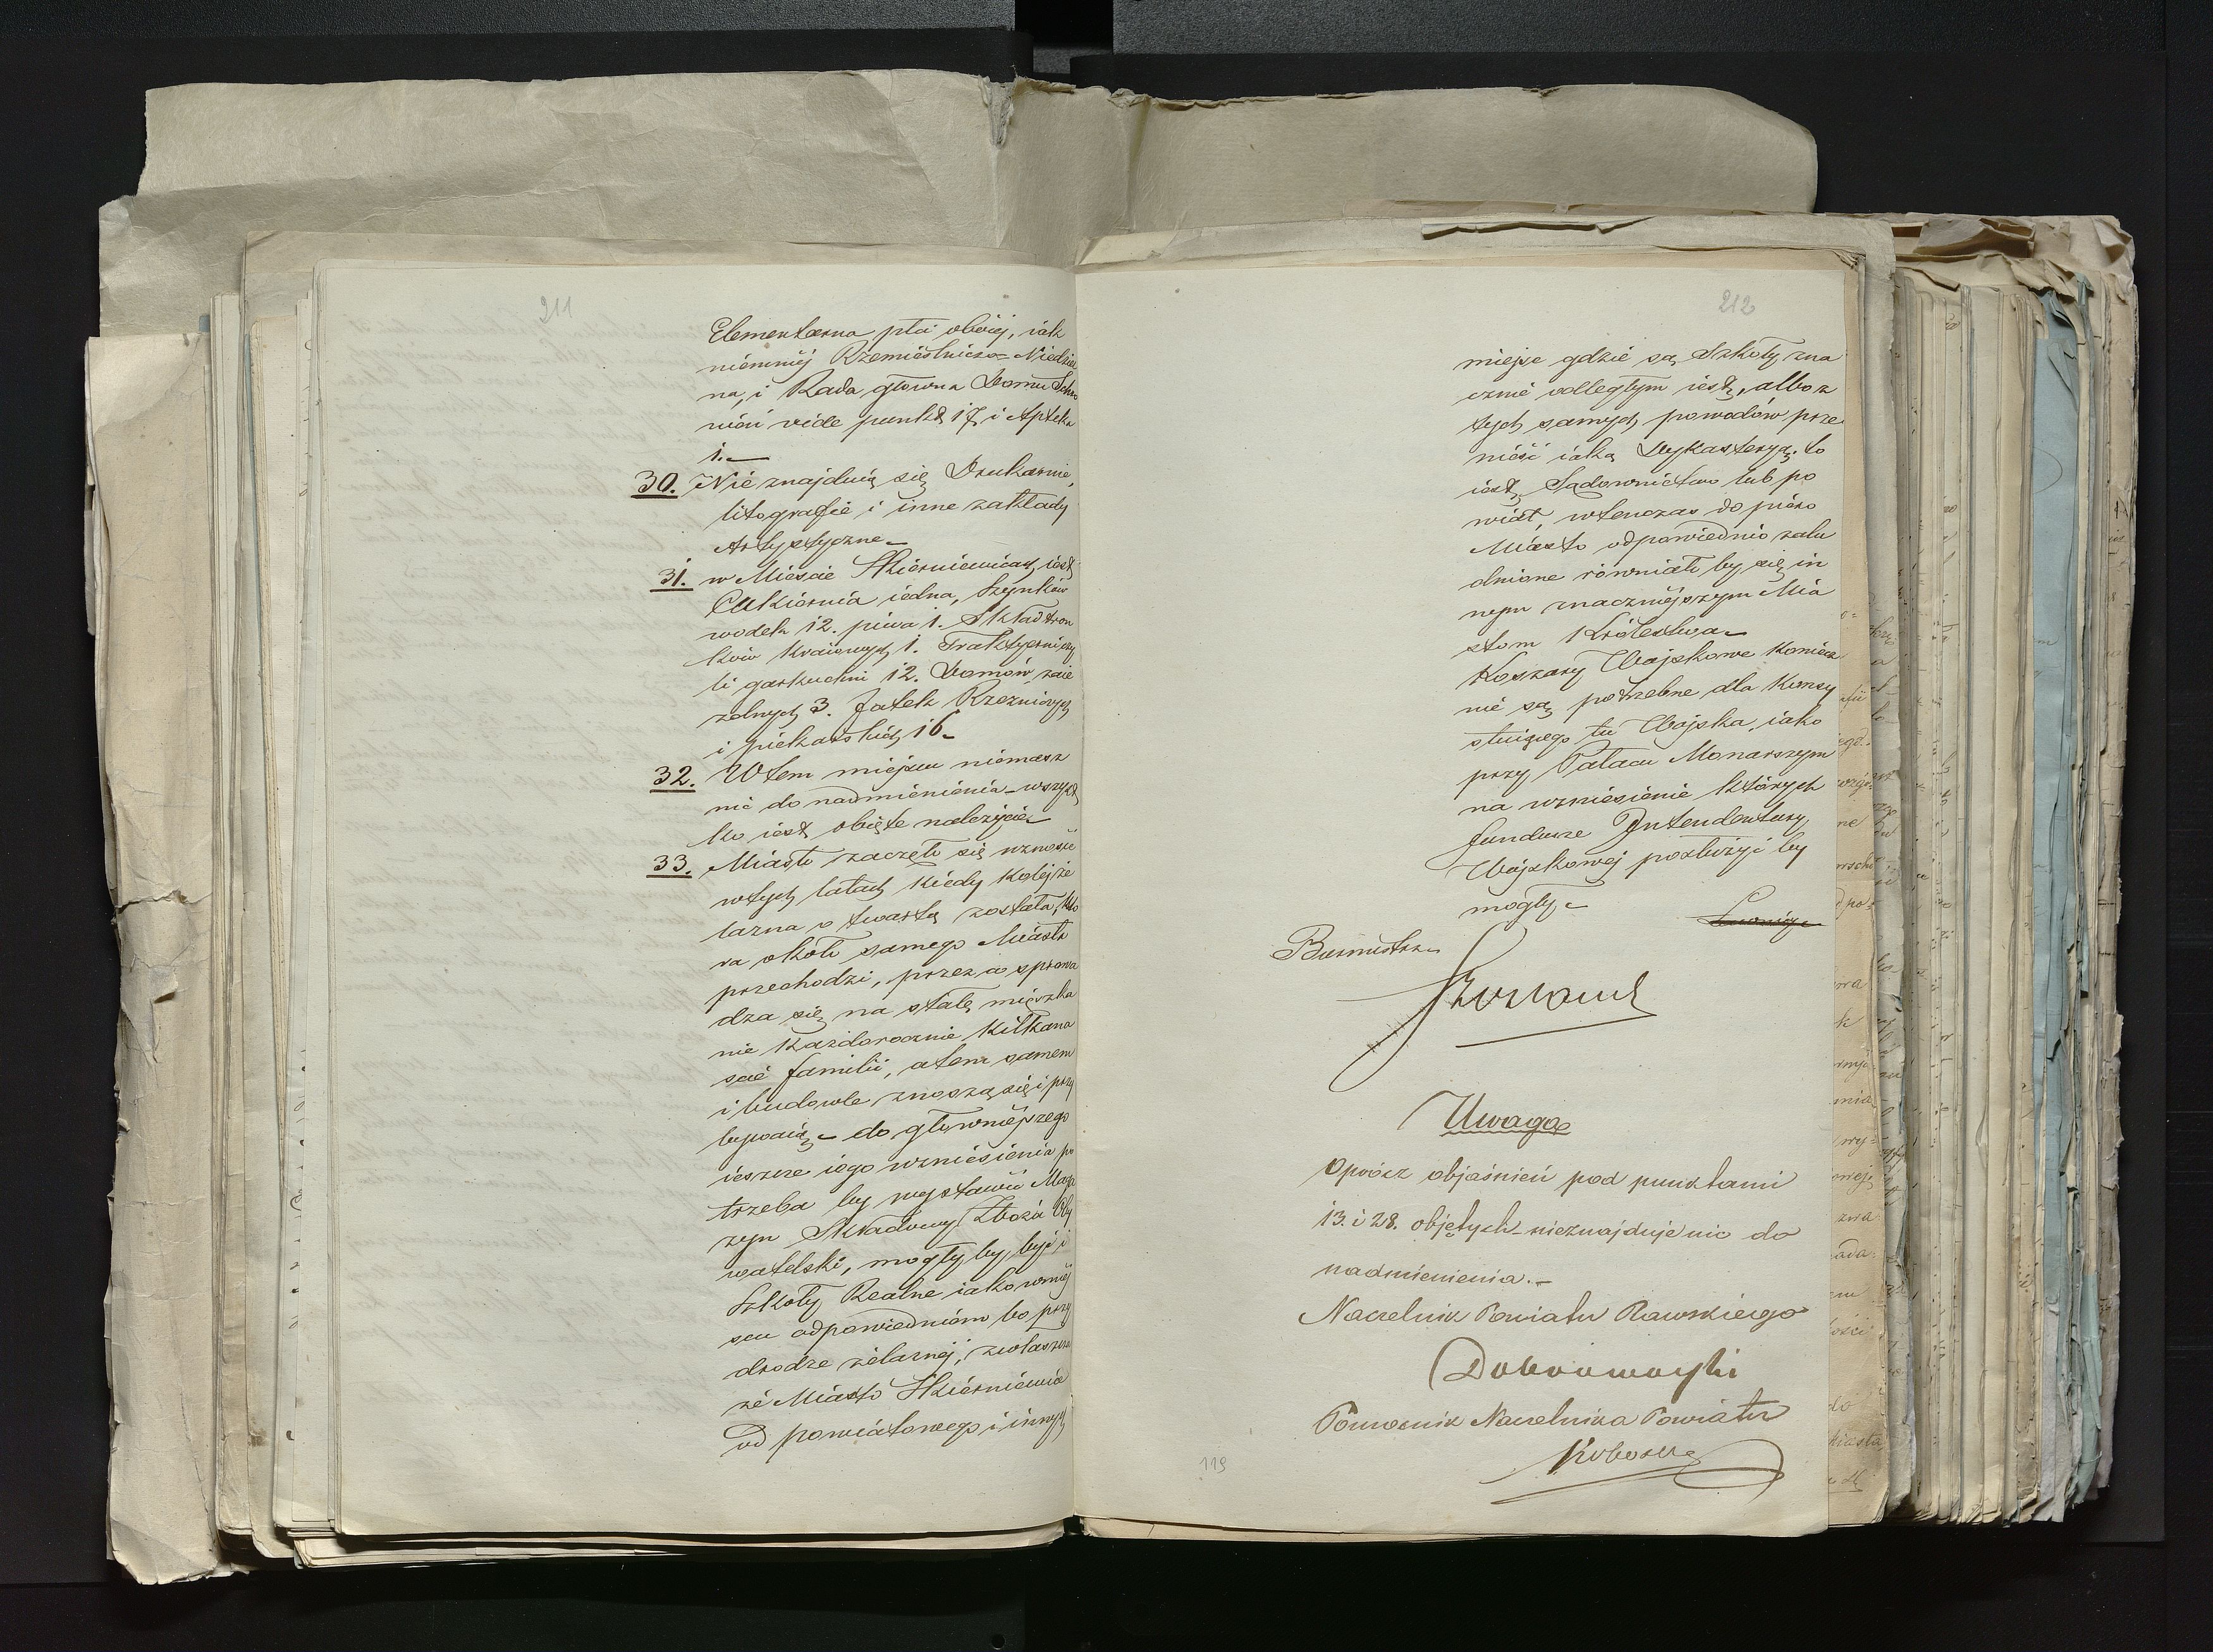 211
Elementarna płci obojéj, iak
niemniéj Rzemieślniczo-Niedziel
na, i Rada głowna Domu Schro
nień vide punkt 17 i Apteka
1.
30. Nie znajduią się Drukarnie,
litografie i inne zakłady
Artystyczne
31. w Mieście Skierniewicach iest
Cukiernia iedna, Szynków
wodek 12. piwa 1. Skład trun
ków kraiowych 1. Traktyerni czy
li garkuchni 12. Domów zaie
zdnych 3. Jatek Rzezniczych
i piekarskich 16
32. W tem miejscu niemasz
nic do nadmienienia wszyst
ko iest obięte należycie
33. Miasto zaczęło się wznosić
w tych latach kiedy kolej że
lazna otwartą została, któ
ra około samego Miasta
przechodzi, przez co sprowa
dza się na stałe mieszka
nie każdorocznie kilkana
ście familii, a tem samem
i budowle wznoszą się i przy
bywaią do głowniejszego
ieszcze iego wzniesienia po
trzeba by wystawić Maga
zyn Składowy Zboża Oby
watelski, mogły by być i
Szkoły Realne iako w miéj
scu odpowiedniém bo przy
drodze żelaznéj, zwłaszcza
że Miasto Skierniewice
od powiatowego i innych
212
miejsc gdzie są Szkoły zna
cznie odległym iest, albo z
tych samych powodów prze
nieść iaką Dykasteryą to
iest Sądownictwo lub po
wiat, wtenczas dopiero
Miasto odpowiednio zalu
dnione równiało by się in
nym znaczniejszym Mia
stom Królestwa
Koszary Wojskowe koniecz
nie są potrzebne dla konsy
stuiącego tu Wojska, iako
przy Pałacu Monarszym
na wzniesienie których
fundusze Intendentury
Wojskowej posłużyć by
mogły
Burmistrz
Uwaga
Oprócz objaśnień pod punktami
13. i 28. objętych nieznajduje nic do
nadmienienia.
Naczelnik Powiatu Rawskiego
Pomocnik Naczelnika Powiatu
119